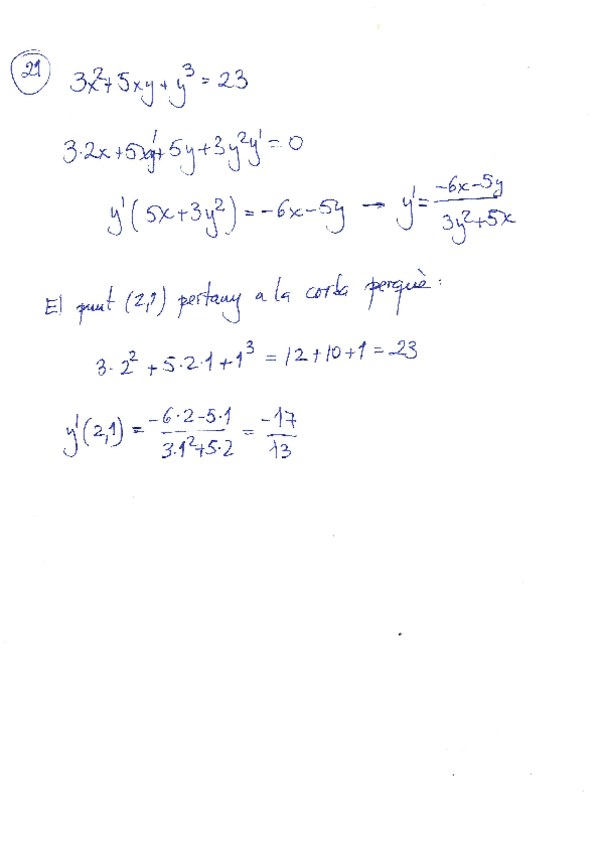 21 3x²+5xy+y³=23
3·2x+5xy'+5y+3y²y'=0
y'(5x+3y²)=-6x-5y → y'=(-6x-5y)/(3y²+5x)
El punt (2,1) pertany a la corba perquè:
3·2²+5·2·1+1³=12+10+1=23
y'(2,1)=(-6·2-5·1)/(3·1²+5·2)=-17/13